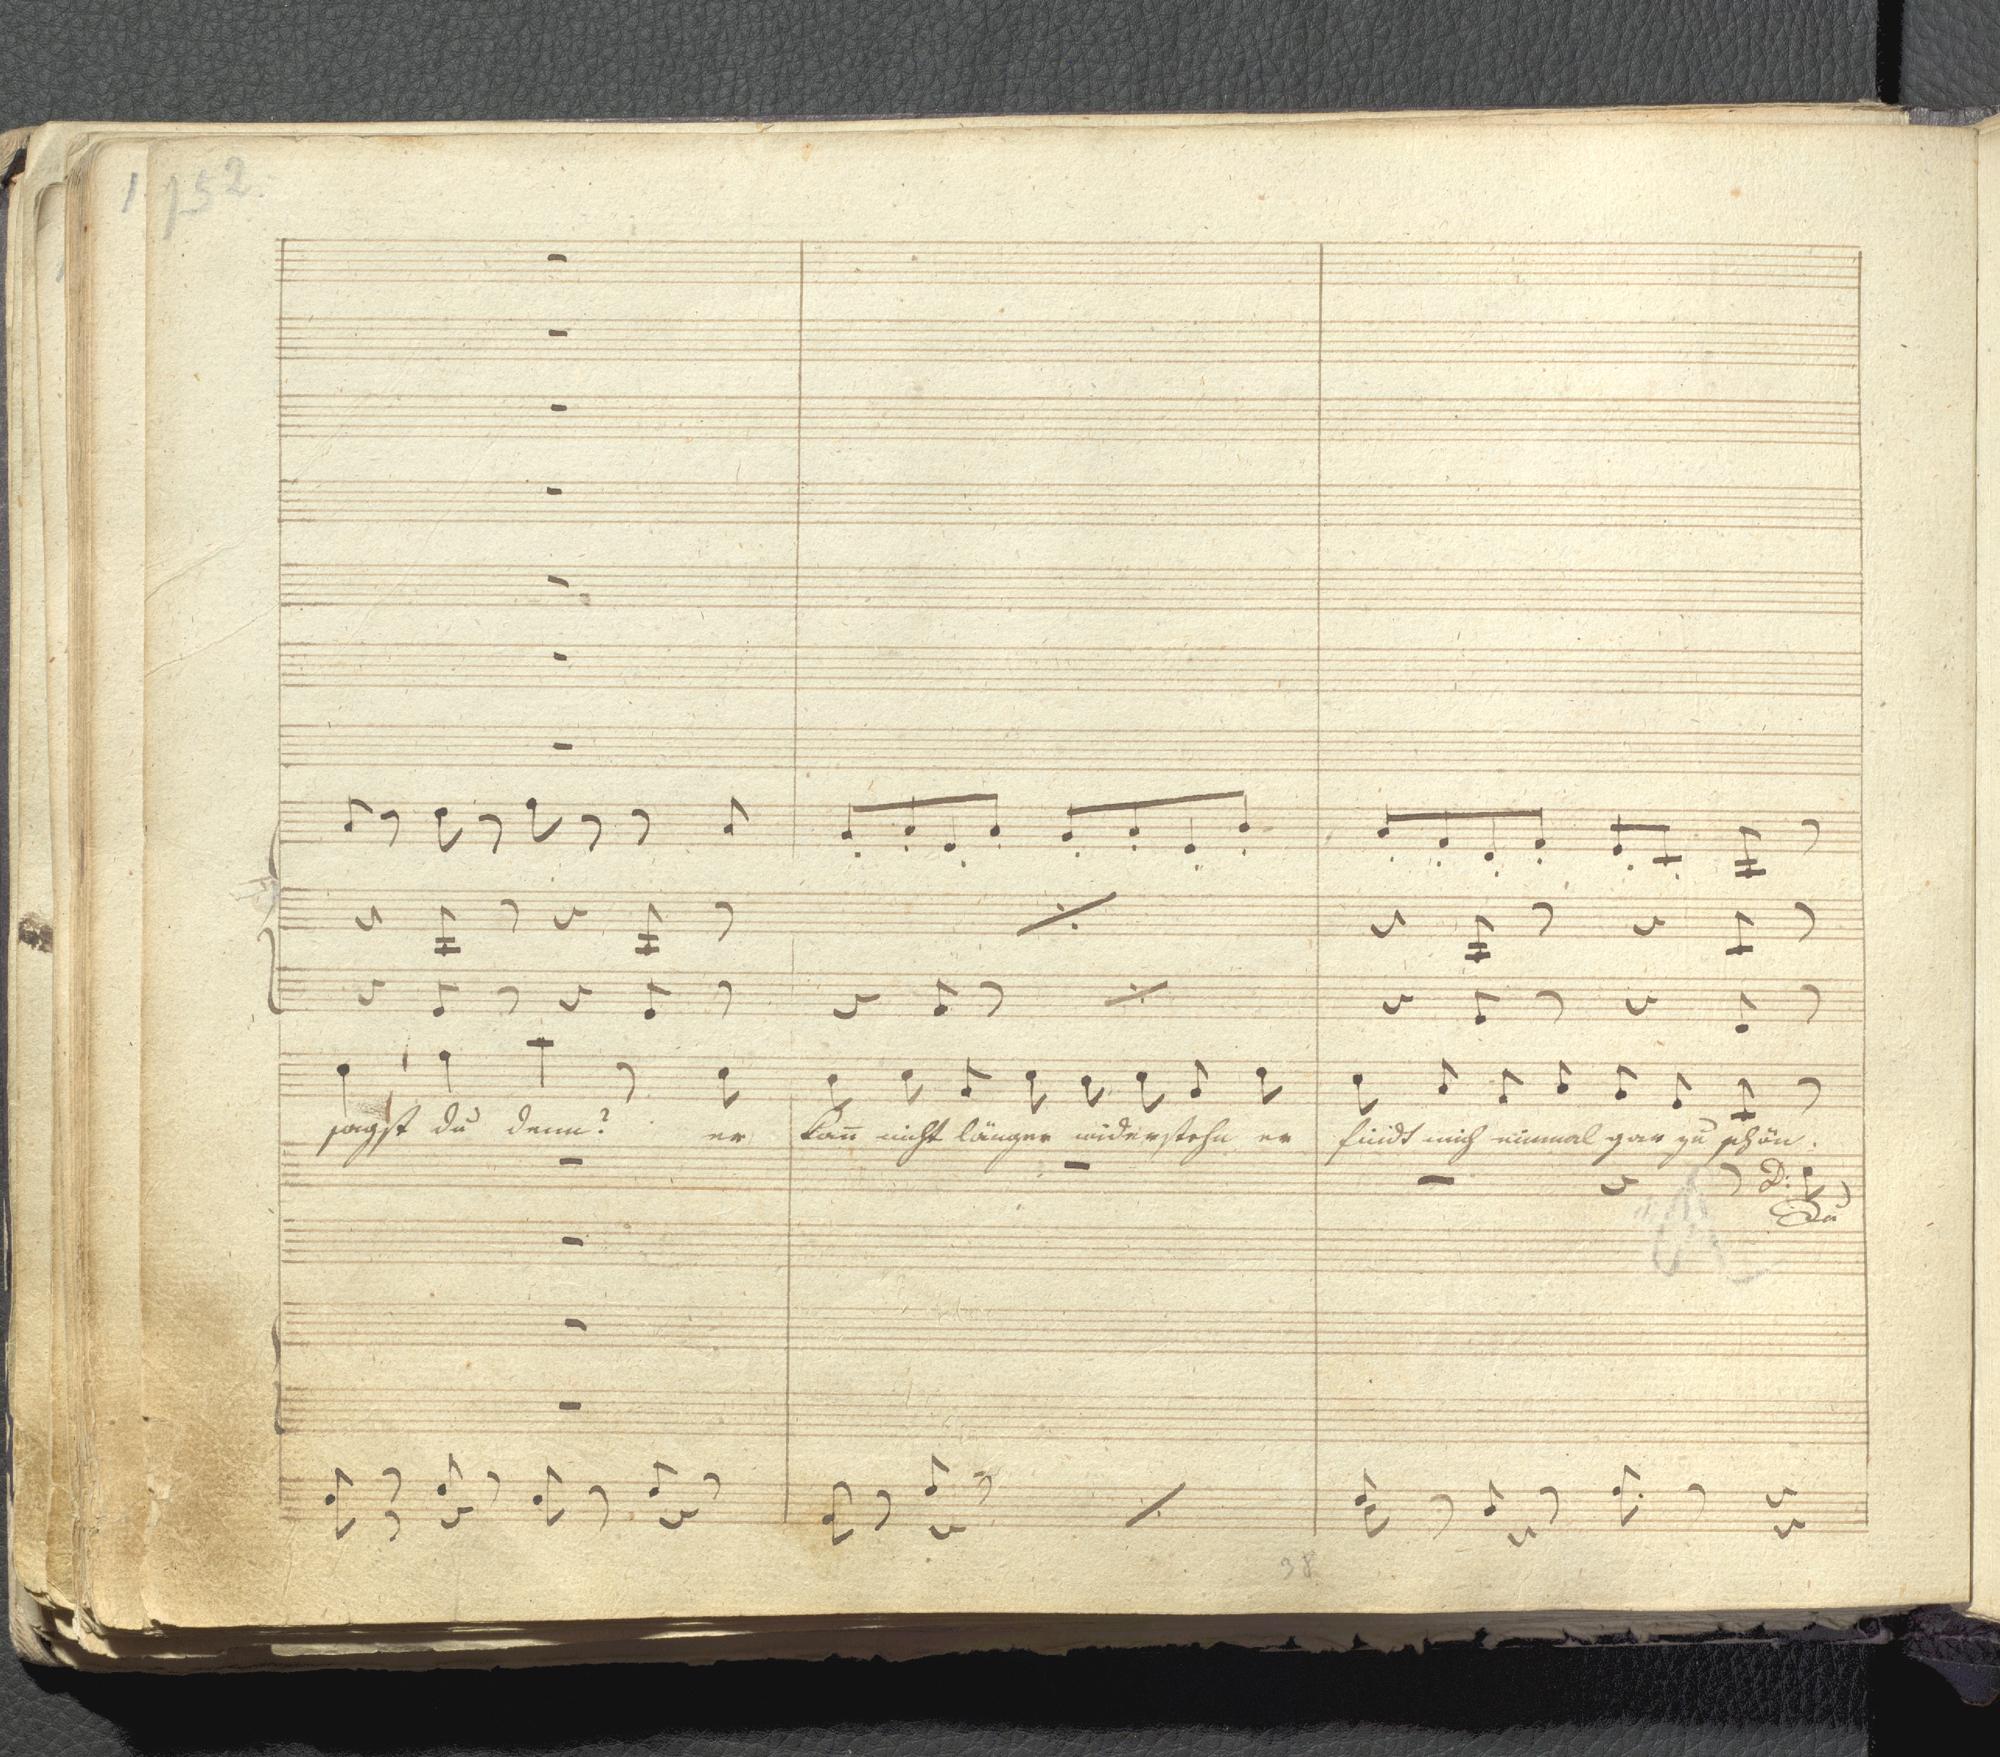 152.
sagst du denn? er kan̄ nicht länger widerstehn er findt mich einmal gar zu schön.
D:
Du
38